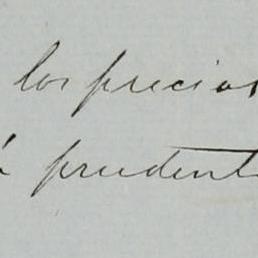 los precios
á prudent